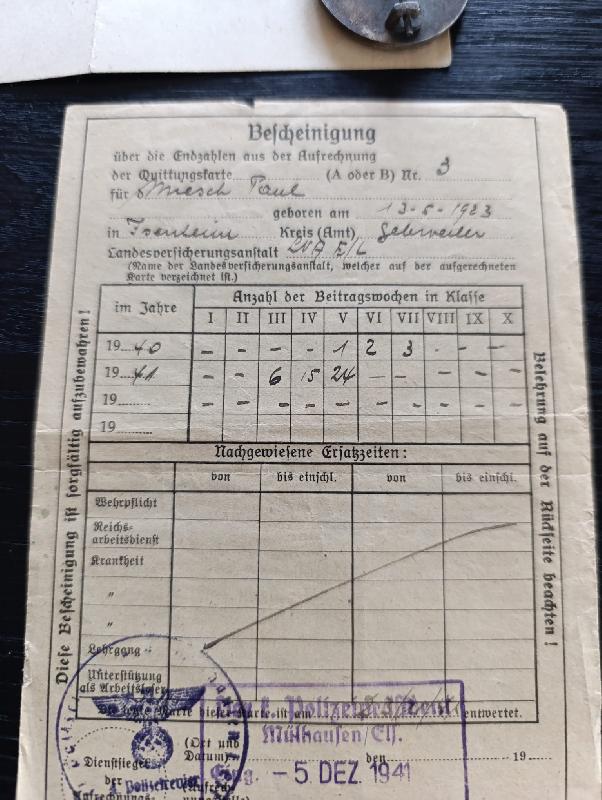 Bescheinigung
über die Endzahlen aus der Aufrechnung
der Quittungskarte (A oder B) Nr. 3
für Miesch Paul
geboren am 13-5-1923
in Isenheim Kreis (Amt) Gebweiler
Landesversicherungsanstalt LVA E/L
(Name der Landesversicherungsanstalt, welcher auf der aufgerechneten
Karte verzeichnet ist.)
im Jahre Anzahl der Beitragswochen in Klasse
I II III IV V VI VII VIII IX X
1940 - - - - 1 2 3 - - -
1941 - - 6 15 24 - - - - -
19 - - - - - - - - - -
19
Nachgewiesene Ersatzzeiten:
von bis einschl. von bis einschl.
Wehrpflicht
Reichs-
arbeitsdienst
Krankheit
"
"
Lehrgang
Unterstützung
als Arbeitsloser
Die Karte dieser ist am entwertet.
Polizei
Mülhausen/Els.
(Ort und
Datum) den 19
Dienstsiegel
der
Aufrechnungs-
- 5. DEZ. 1941
Polizeirevier
Diese Bescheinigung ist sorgfältig aufzubewahren!
Belehrung auf der Rückseite beachten!